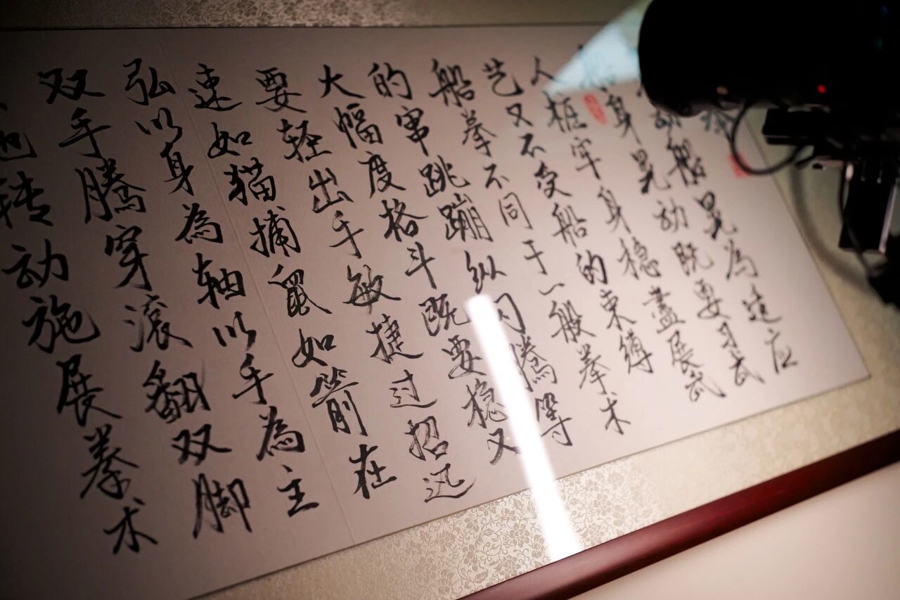 动船晃為适应
身晃动既要习武
人桩牢身稳盡展武
艺又不受船的束缚
船拳不同于一般拳术
的串跳蹦纵闪腾等
大幅度格斗既要稳又
要轻出手敏捷过招迅
速如猫捕鼠如箭在
弘以身為轴以手為主
双手腾穿滚翻双脚
转动施展拳术